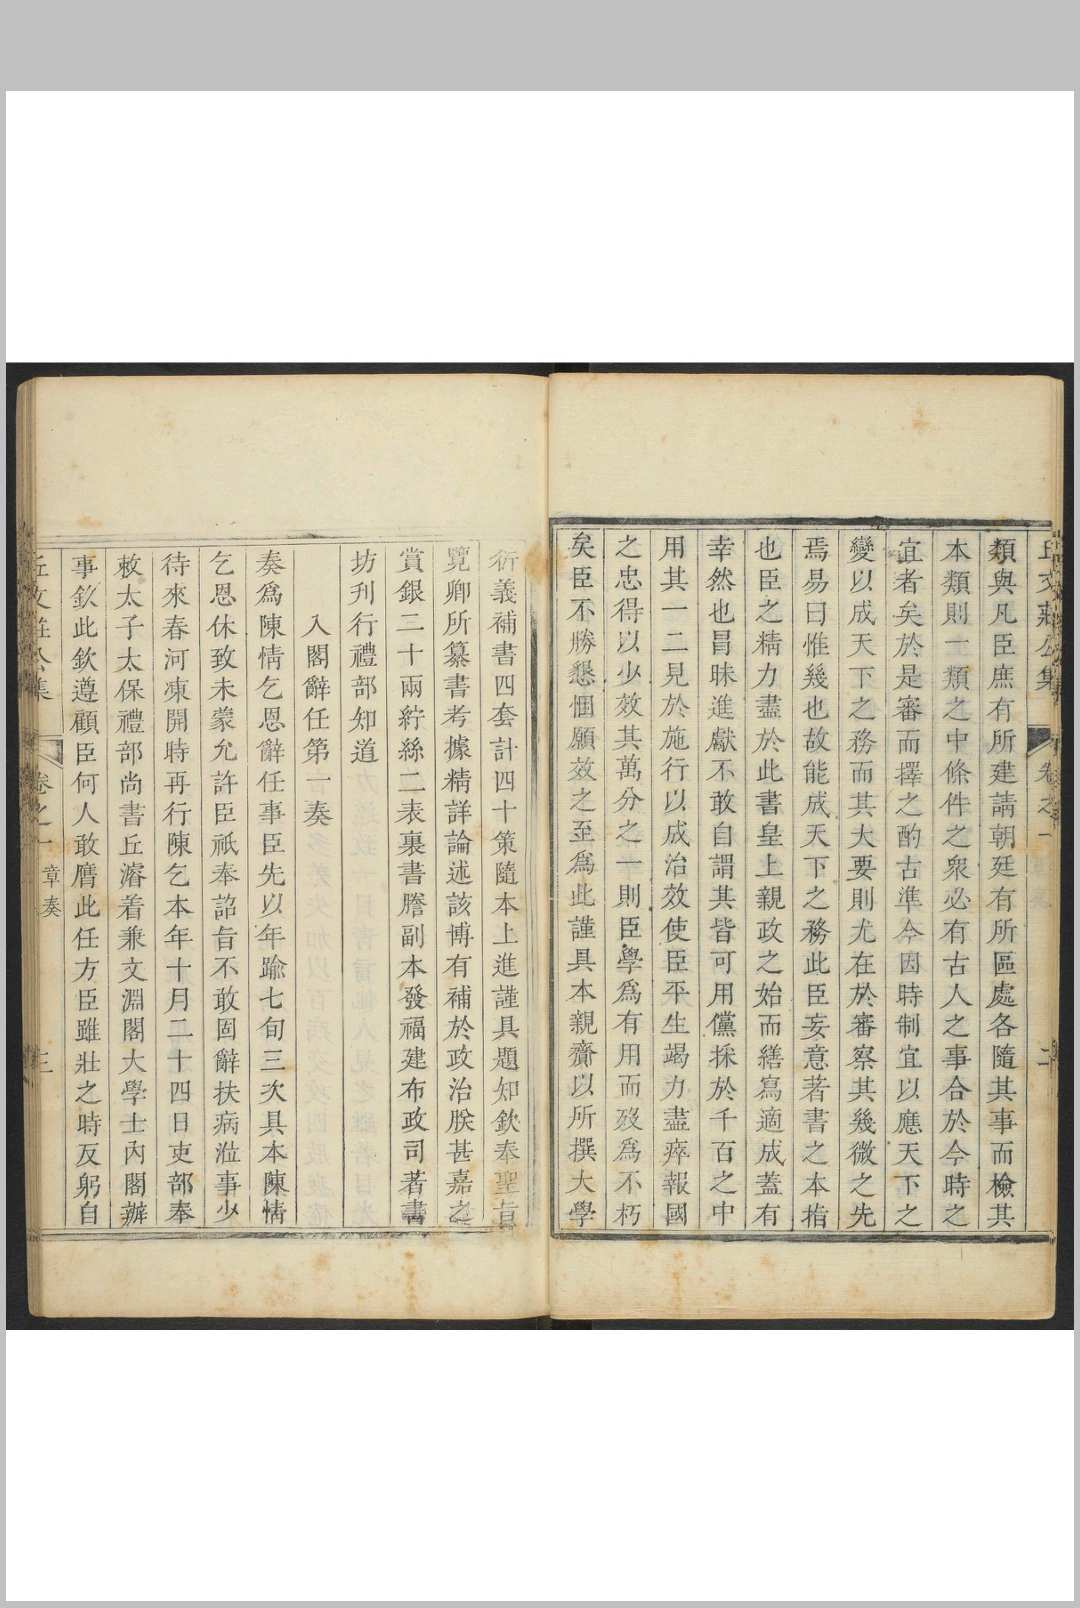 丘文莊公集
卷之一
二
類與凡臣庶有所建請朝廷有所區處各隨其事而檢其
本類則一類之中條件之衆必有古人之事合於今時之
宜者矣於是審而擇之酌古準今因時制宜以應天下之
變以成天下之務而其大要則尤在於審察其幾微之先
焉易曰惟幾也故能成天下之務此臣妄意著書之本指
也臣之精力盡於此書皇上親政之始而繕寫適成蓋有
幸然也冒昧進獻不敢自謂其皆可用儻採於千百之中
用其一二見於施行以成治效使臣平生竭力盡瘁報國
之忠得以少效其萬分之一則臣學爲有用而歿爲不朽
矣臣不勝懇悃願效之至爲此謹具本親齎以所撰大學
衍義補書四套計四十策隨本上進謹具題知欽奉聖旨
覽卿所纂書考據精詳論述該博有補於政治朕甚嘉之
賞銀二十兩紵絲二表裏書謄副本發福建布政司著書
坊刋行禮部知道
入閣辭任第一奏
奏爲陳情乞恩辭任事臣先以年踰七旬三次具本陳情
乞恩休致未蒙允許臣祇奉詔旨不敢固辭扶病涖事少
待來春河凍開時再行陳乞本年十月二十四日吏部奉
敕太子太保禮部尚書丘濬着兼文淵閣大學士內閣辦
事欽此欽遵顧臣何人敢膺此任方臣雖壯之時反躬自
丘文莊公集
卷之一
章奏
三